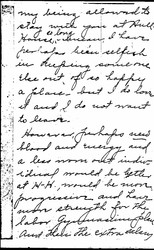 my being allowed to
stay with you at Hull
House so long. I have
perhaps been selfish
in keeping some one
else out of so happy
a place. but I do love
it and I do not want
to leave.
However, perhaps new
blood and energy and
a less worn out indi-
vidual would be better
at H-H. would be more
progressive and have
more strength for the
labor, Gymnasium
And then the extra